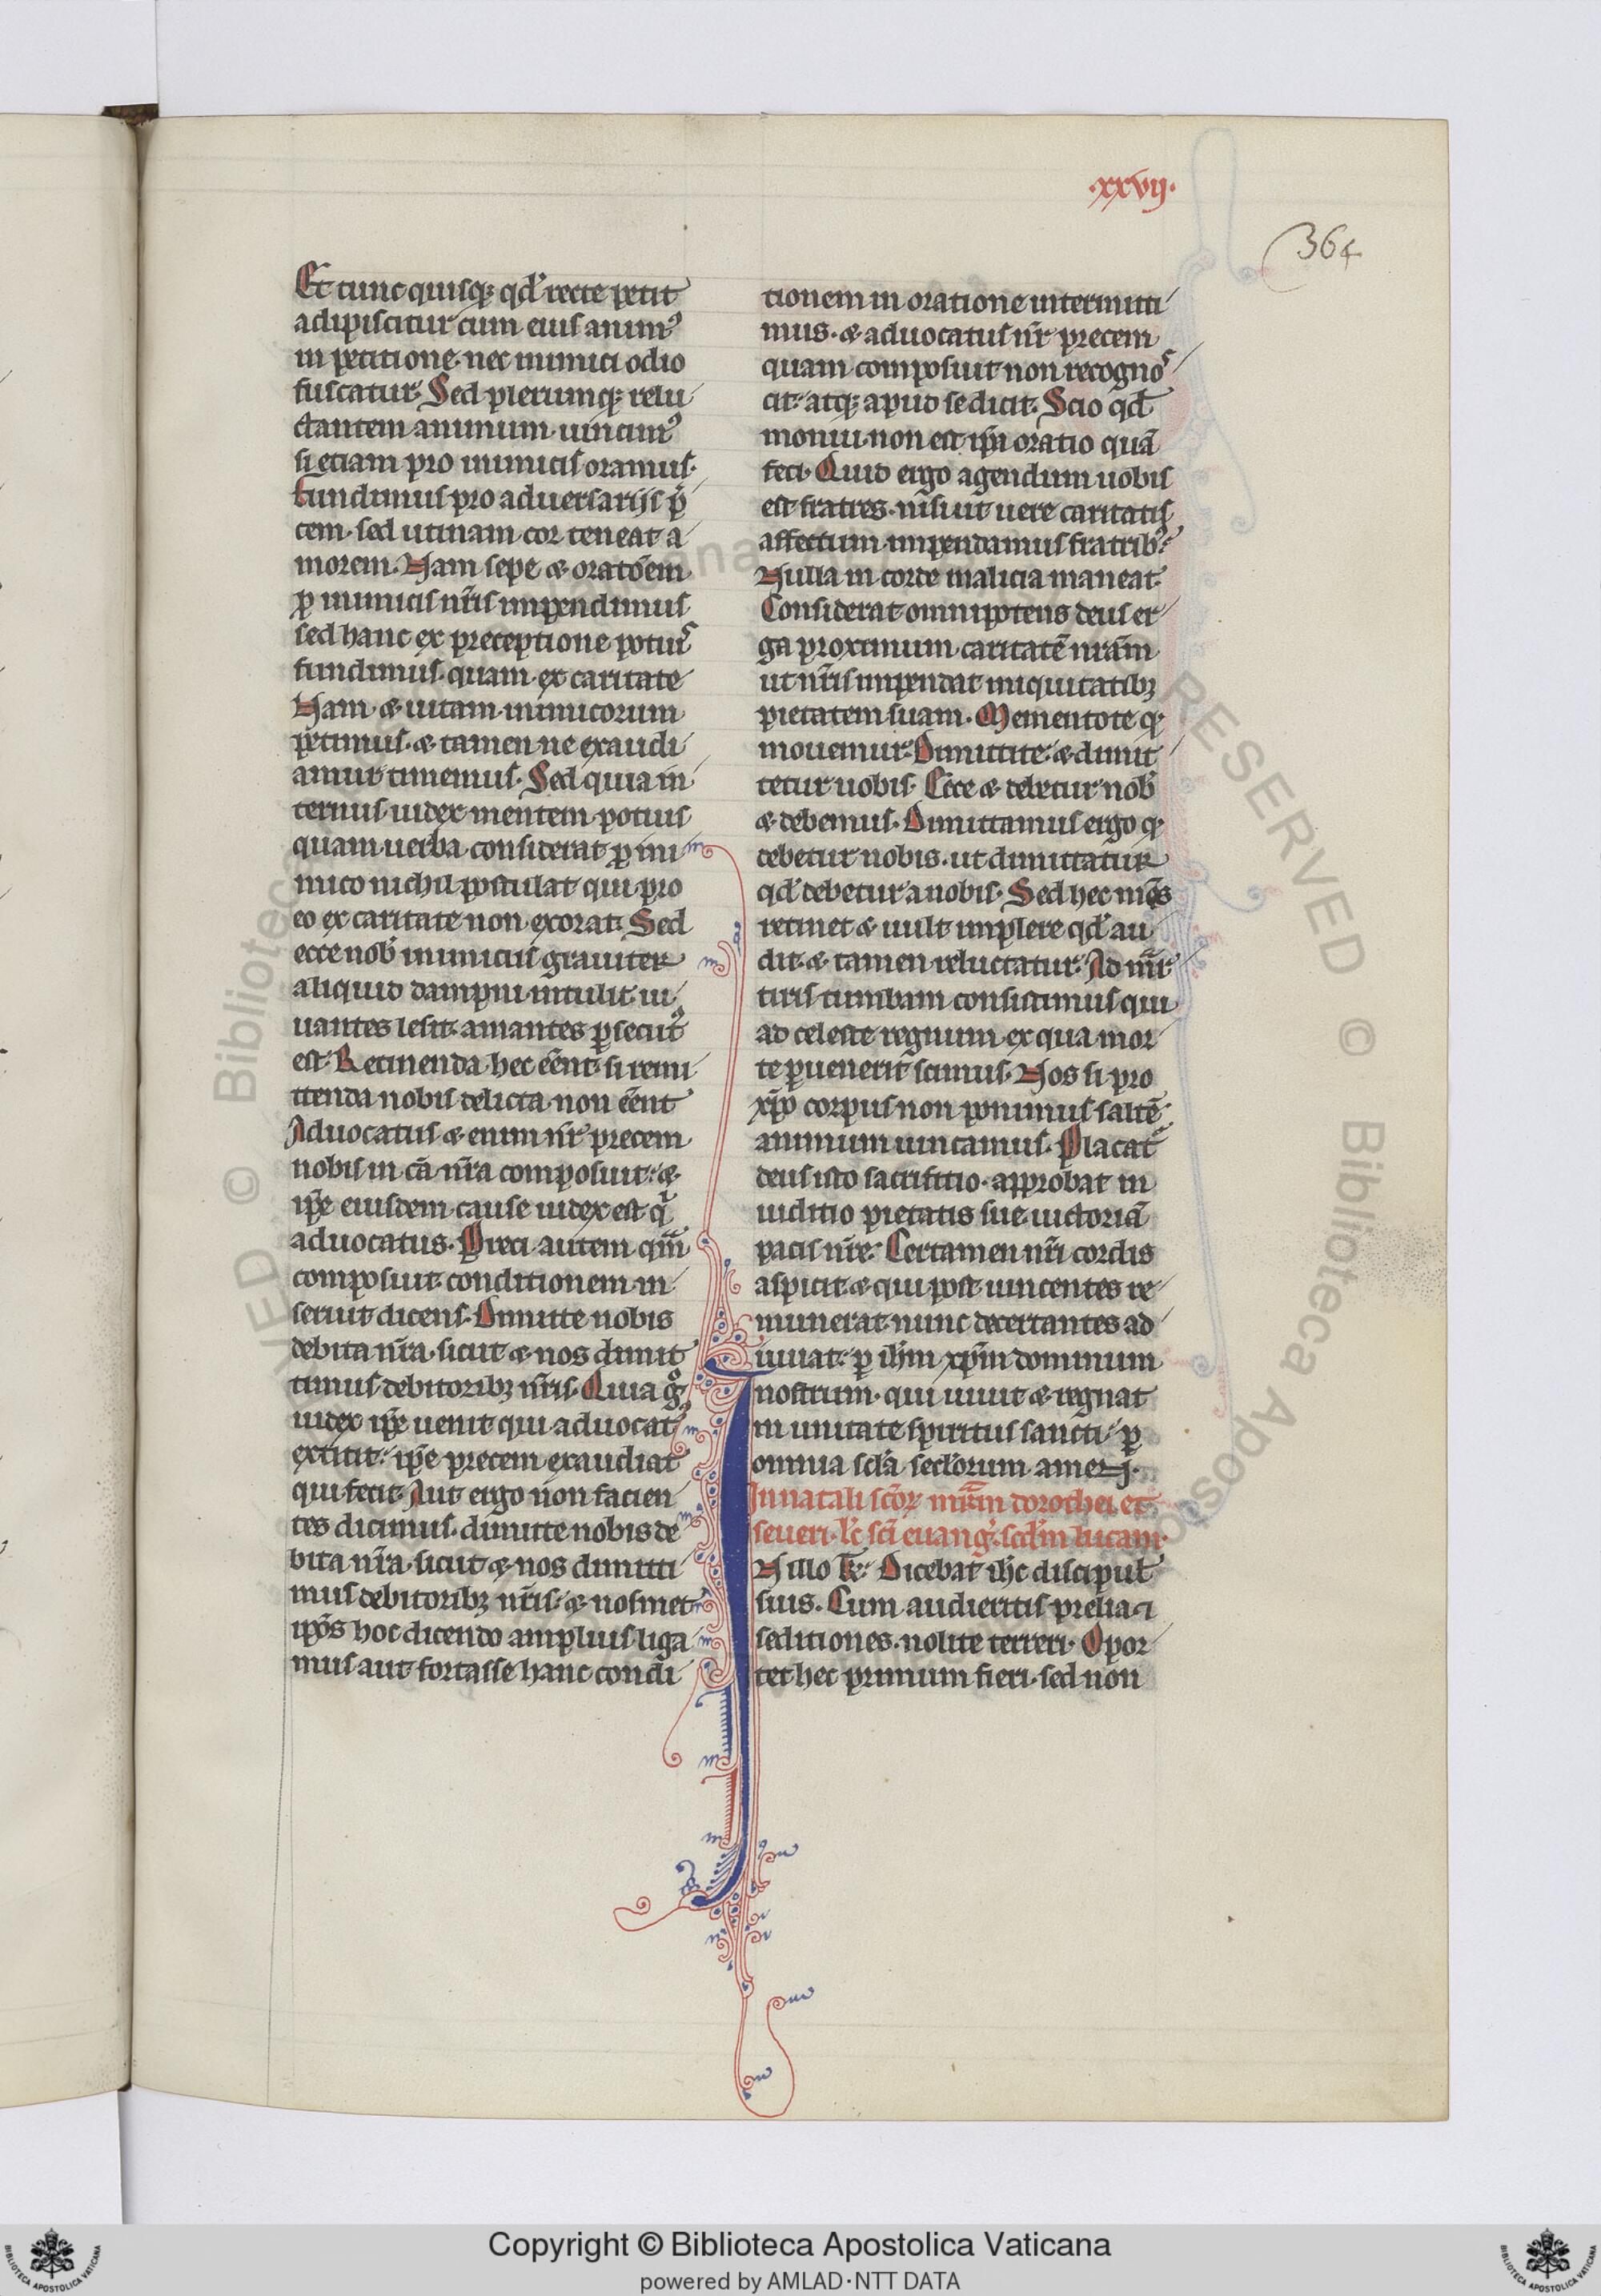 ·xxvij·
364
Et tunc quisq; qd' recte petit
adipiscitur cum eius anim9
in petitione nec inimici odio
fuscatur. Sed plerumq; relu
ctantem animum uincim9
si etiam pro inimicis oramus.
fundimus pro aduersarijs p̄
cem. sed utinam cor teneat a
morem. Nam sepe & oratōem
ꝓ inimicis nr̄is impendimus
sed hanc ex preceptione potius
fundimus. quam ex caritate
Nam & uitam inimicorum
petimus. & tamen ne exaudi
amur timemus. Sed quia in
ternus iudex mentem potius
quam uerba considerat ꝓ ini
mico nichil postulat qui pro
eo ex caritate non exorat. Sed
ecce nob' inimicus grauiter
aliquid dampni intulit. iu
uantes lesit. amantes ꝑsecut9
est. Retinenda hec eēnt. si remi
ttenda nobis delicta non eēnt
Aduocatus & enim nr̄ precem
nobis in cā nr̄a composuit. &
ip̄e eiusdem cause iudex est q'
aduocatus. Preci autem quā
composuit conditionem in
seruit dicens. Dimitte nobis
debita nr̄a. sicut & nos dimit
timus debitorib; nr̄is. Quia gͦ
iudex ip̄e uenit qui aduocat9
extitit. ip̄e precem exaudiat
qui fecit. Aut ergo non facien
tes dicimus. dimitte nobis de
bita nr̄a. sicut & nos dimitti
mus debitorib; nr̄is. & nosmet
ip̄os hoc dicendo amplius liga
mus aut fortasse hanc condi
tionem in oratione intermitti
mus. & aduocatus nr̄ precem
quam composuit non recognos
cit. atq; apud se dicit. Scio qd'
monui. non est ip̄a oratio quā
feci. Quid ergo agendum uobis
est fratres. nisi ut uere caritatis
affectum impendamus fratrib9.
Nulla in corde malicia maneat.
Consideret omnipotens deus er
ga proximum caritatē nrām
ut nr̄is impendat iniquitatib;
pietatem suam. Mementote q;
mouemur. Dimittite. & dimit
tetur uobis. Ecce & debetur nob'
& debemus. Dimittamus ergo q;
debetur nobis. ut dimittatur
qd' debetur a nobis. Sed hec mēs
retinet & uult implere qd' au
dit. & tamen reluctatur. Ad mr̄
tiris tumbam consistimus qui
ad celeste regnum ex qua mor
te ꝑuenerit scimus. Nos si pro
xp̄o corpus non ponimus saltē
animum uincamus. Placat'
deus isto sacrifitio. approbat in
iuditio pietatis sue uictoriā
pacis nr̄e. Certamen nr̄i cordis
aspicit. & qui post uincentes re
munerat. nunc decertantes ad
iuuat. ꝑ ih̄m xp̄m dominum
nostrum. qui uiuit & regnat
in unitate spiritus sancti. ꝑ
omnia sc̄la seculorum amen.
In natali sc̄or mr̄m dorothei et
seueri. lc̄ sc̄i euang'. sc̄dm lucam.
IN illo t̄e. Dicebat ih̄c discipul'
suis. Cum audieritis prelia ⁊
seditiones. nolite terreri. Opor
tet hec primum fieri. sed non
© Biblioteca Apostolica Vaticana
RESERVED © Biblioteca Apostolica
Copyright © Biblioteca Apostolica Vaticana
powered by AMLAD·NTT DATA
BIBLIOTECA APOSTOLICA VATICANA
BIBLIOTECA APOSTOLICA VATICANA